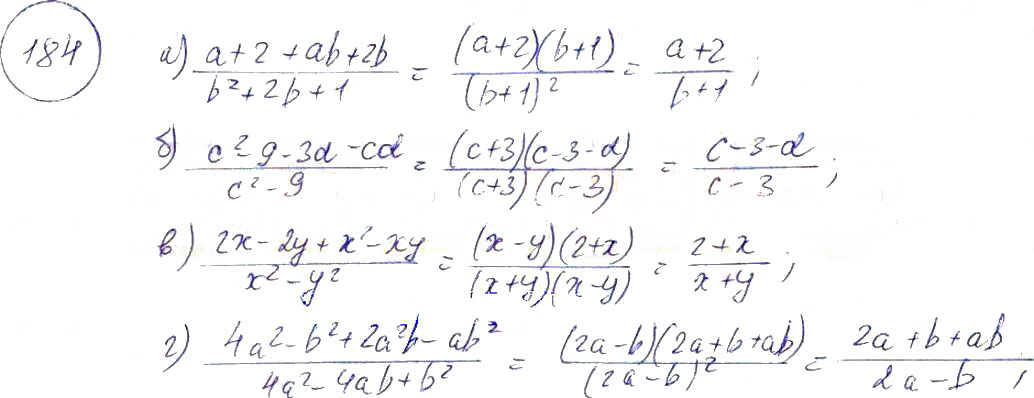 184
а) (a+2+ab+2b)/(b²+2b+1) = ((a+2)(b+1))/((b+1)²) = (a+2)/(b+1);
б) (c²-9-3d-cd)/(c²-9) = ((c+3)(c-3-d))/((c+3)(c-3)) = (c-3-d)/(c-3);
в) (2x-2y+x²-xy)/(x²-y²) = ((x-y)(2+x))/((x+y)(x-y)) = (2+x)/(x+y);
г) (4a²-b²+2a²b-ab²)/(4a²-4ab+b²) = ((2a-b)(2a+b+ab))/((2a-b)²) = (2a+b+ab)/(2a-b);